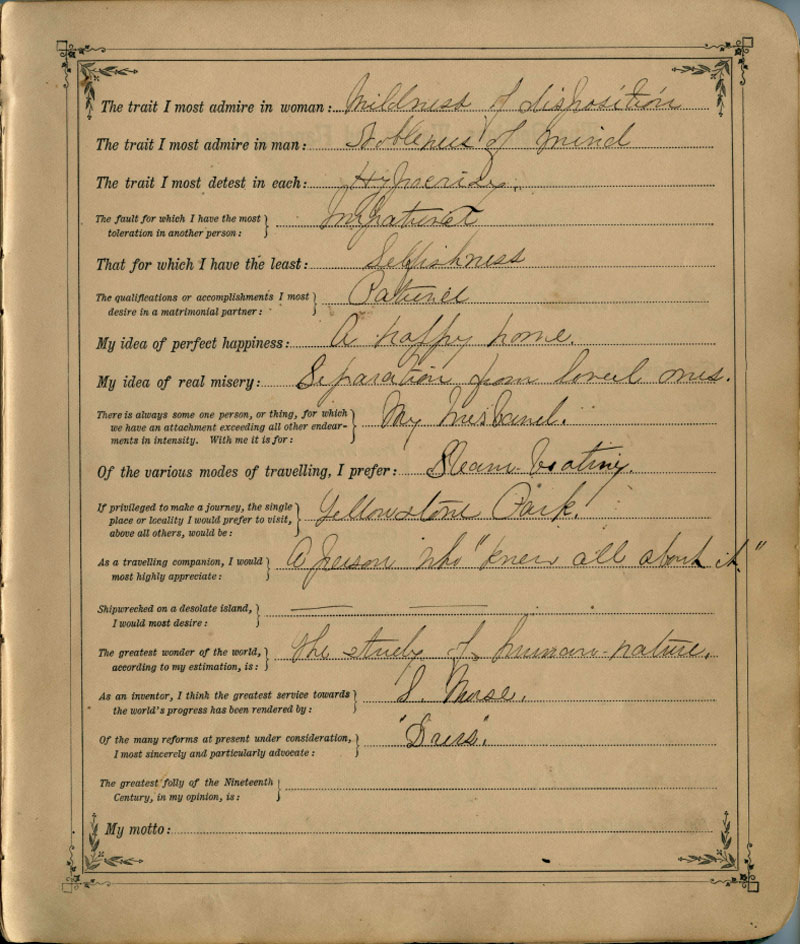 The trait I most admire in woman: Mildness of disposition
The trait I most admire in man: Nobleness of mind
The trait I most detest in each: Hypocrisy.
The fault for which I have the most
toleration in another person: Impatience
That for which I have the least: Selfishness
The qualifications or accomplishments I most
desire in a matrimonial partner: Patience
My idea of perfect happiness: A happy home.
My idea of real misery: Separation from loved ones.
There is always some one person, or thing, for which
we have an attachment exceeding all other endear-
ments in intensity. With me it is for: My husband.
Of the various modes of travelling, I prefer: Steam boating.
If privileged to make a journey, the single
place or locality I would prefer to visit,
above all others, would be: Yellowstone Park.
As a travelling companion, I would
most highly appreciate: A person who "knew all about it."
Shipwrecked on a desolate island,
I would most desire: — —
The greatest wonder of the world,
according to my estimation, is: the study of human-nature.
As an inventor, I think the greatest service towards
the world's progress has been rendered by: Morse.
Of the many reforms at present under consideration,
I most sincerely and particularly advocate:
The greatest folly of the Nineteenth
Century, in my opinion, is:
My motto: